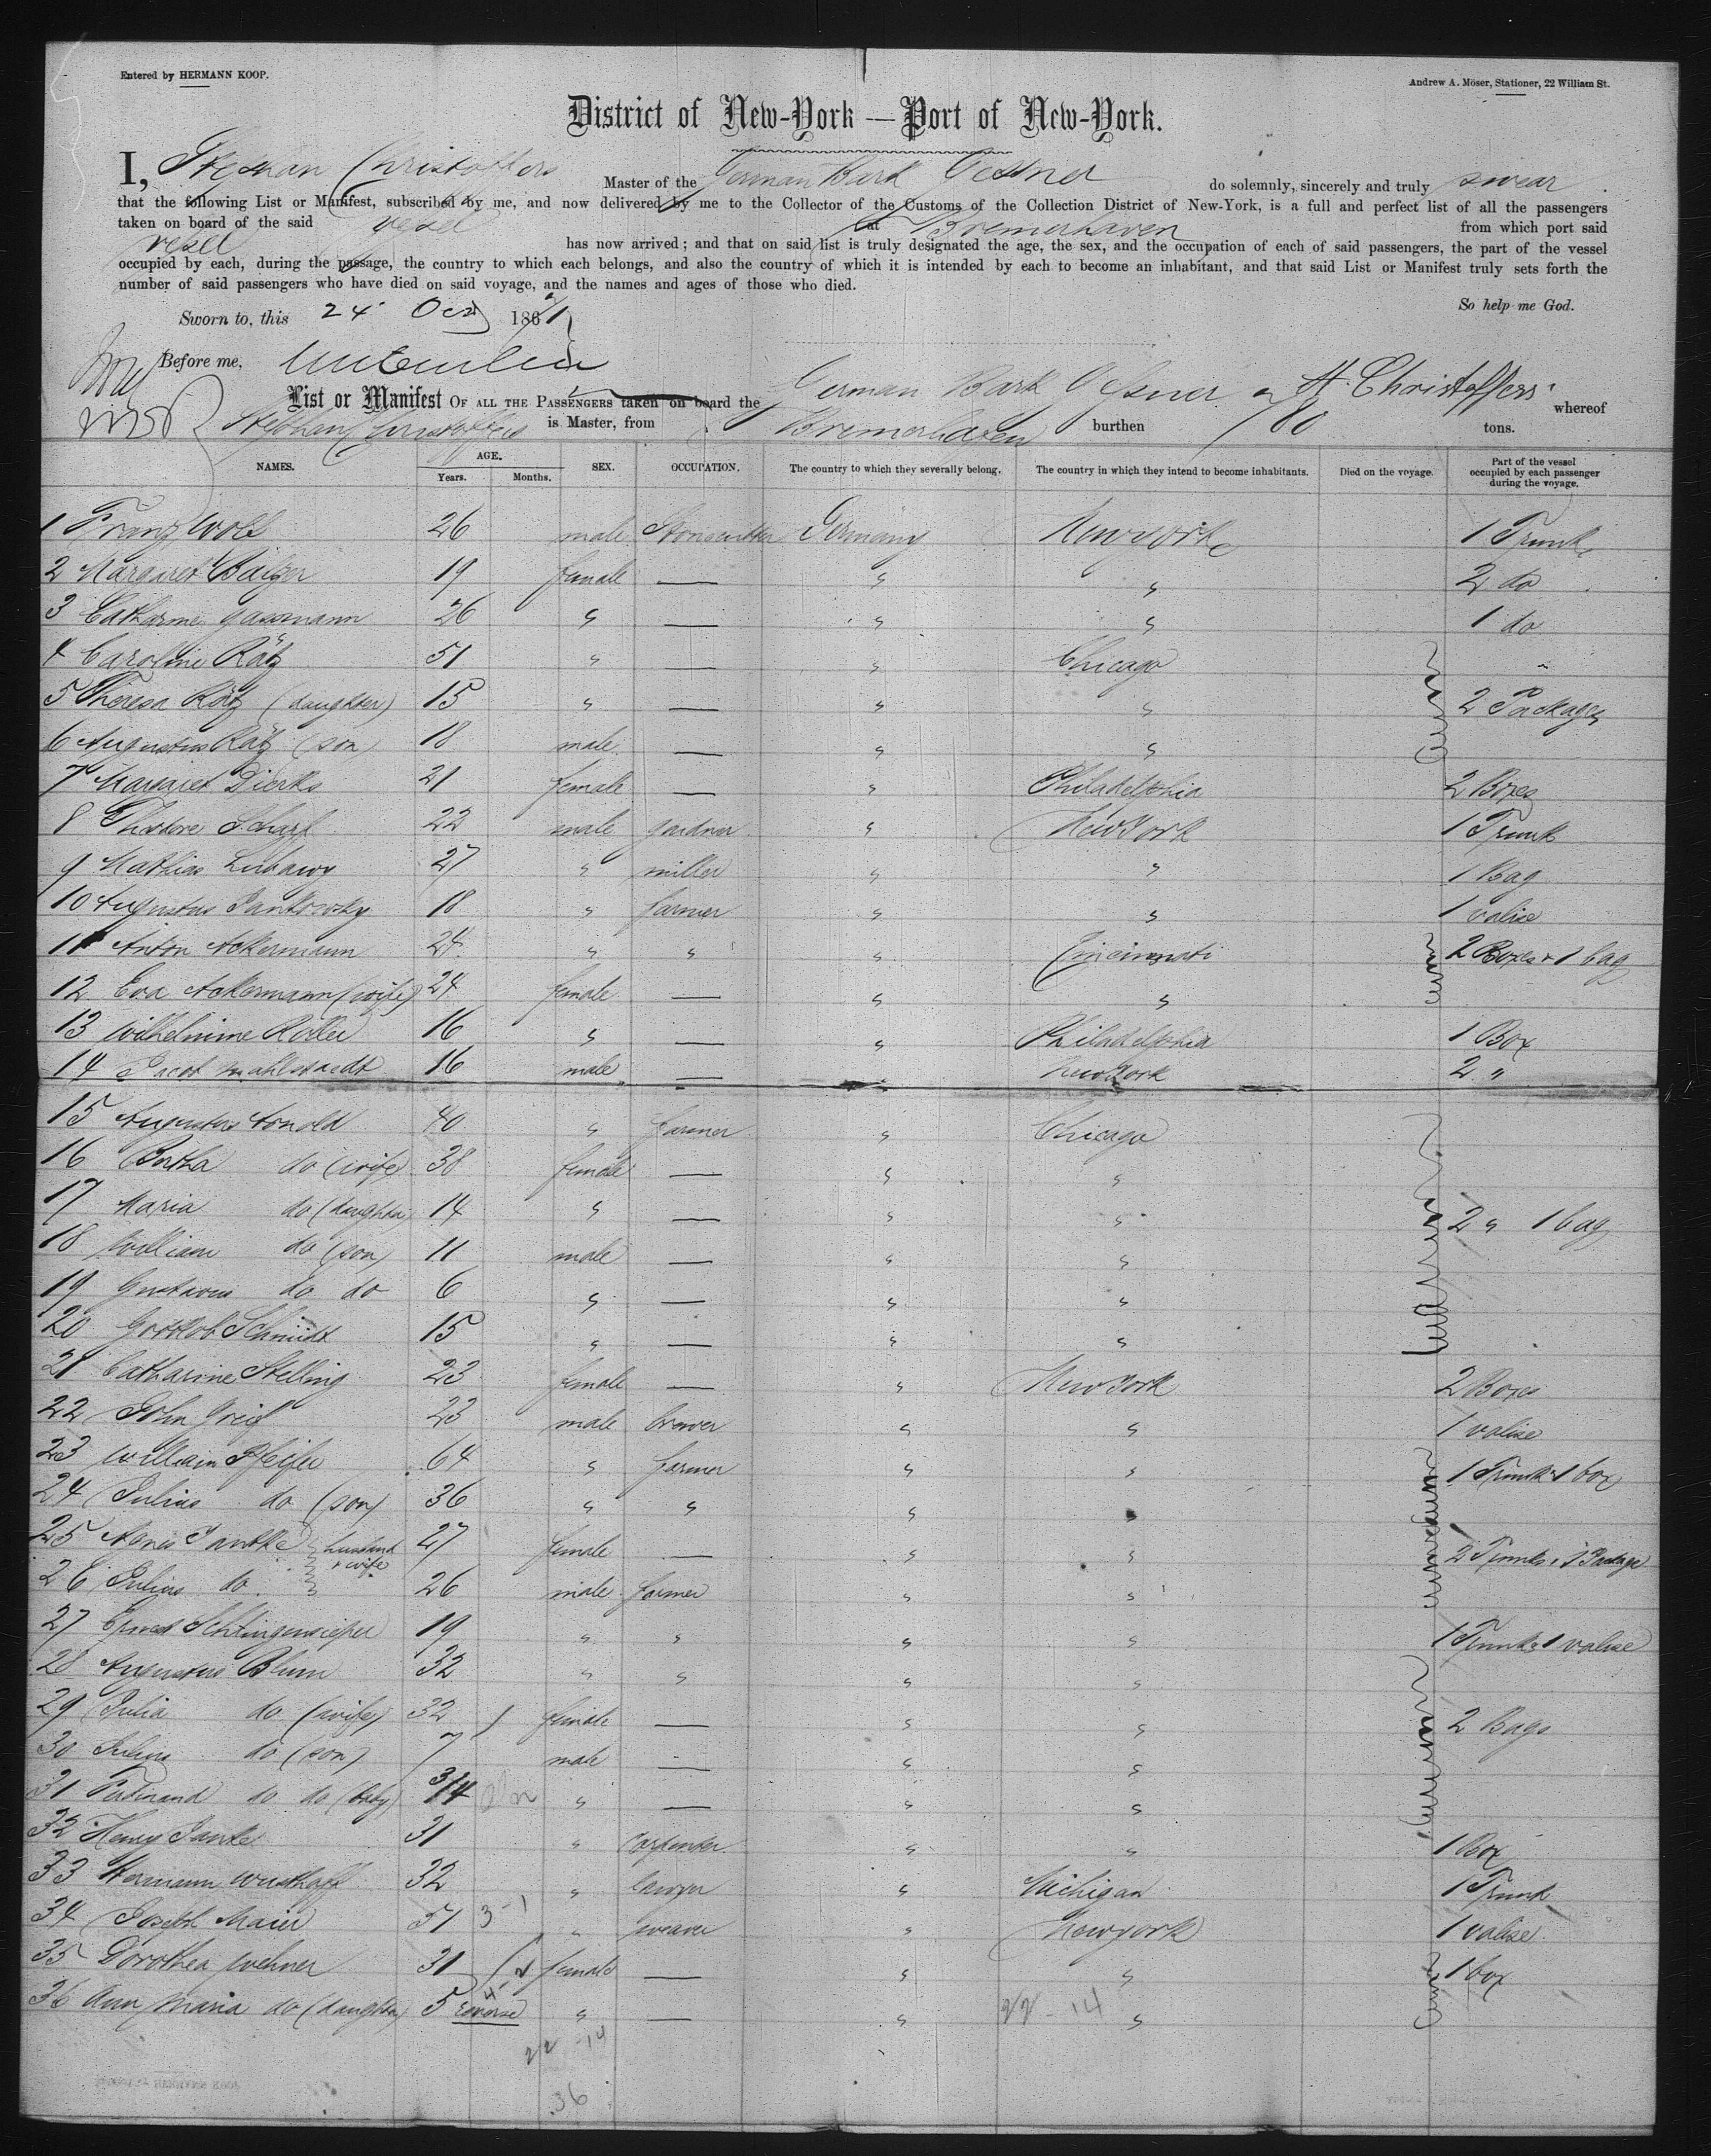 Entered by HERMANN KOOP.
Andrew A. Möser, Stationer, 22 William St.
District of New-York — Port of New-York.
I, Stephan Christoffers Master of the German Bark Gessner do solemnly, sincerely and truly swear
that the following List or Manifest, subscribed by me, and now delivered by me to the Collector of the Customs of the Collection District of New-York, is a full and perfect list of all the passengers
taken on board of the said vesel at Bremerhaven from which port said
vesel has now arrived; and that on said list is truly designated the age, the sex, and the occupation of each of said passengers, the part of the vessel
occupied by each, during the passage, the country to which each belongs, and also the country of which it is intended by each to become an inhabitant, and that said List or Manifest truly sets forth the
number of said passengers who have died on said voyage, and the names and ages of those who died.
So help me God.
Sworn to, this 24 Oct 1871
Before me,
List or Manifest OF ALL THE PASSENGERS taken on board the German Bark Gessner St. Christoffers whereof
Stephan Christoffers is Master, from Bremerhaven burthen 780 tons.
NAMES. AGE. Years. Months. SEX. OCCUPATION. The country to which they severally belong. The country in which they intend to become inhabitants. Died on the voyage. Part of the vessel occupied by each passenger during the voyage.
1 Franz Wolf 26 male Stonecutter Germany New york 1 Trunk
2 Margaret Baitzer 19 female — " " 2 do
3 Catharine Gassmann 26 " — " " 1 do
4 Caroline Rätz 51 " — " Chicago "
5 Theresa Rätz (daughter) 15 " — " " 2 Packages
6 Augustus Rätz (son) 18 male — " "
7 Margaret Dierks 21 female — " Philadelphia 2 Boxes
8 Theodore Scharf 22 male gardner " New York 1 Trunk
9 Mathias 27 " miller " " 1 Bag
10 Augustus Jankowsky 18 " farmer " " 1 valise
11 Anton Ackermann 24 " " " Cincinnati 2 Boxes + 1 bag
12 Eva Ackermann (wife) 24 female — " "
13 Wilhelmine Roller 16 " — " Philadelphia 1 Box
14 Jacob Mahlstaedt 16 male — " New York 2 "
15 Augustus Arnold 40 " farmer " Chicago
16 Bertha do (wife) 38 female — " "
17 Maria do (daughter) 14 " — " " 2 " 1 bag
18 William do (son) 11 male — " "
19 Gustavus do do 6 " — " "
20 Gottlob Schmidt 15 " — " "
21 Catharine Stelling 23 female — " New York 2 Boxes
22 John Greif 23 male brewer " " 1 valise
23 William Pfeifer 64 " farmer " " 1 Trunk + 1 box
24 Julius do (son) 36 " " " "
25 Agnes Jantke husband + wife 27 female — " " 2 Trunks, 1 Package
26 Julius do 26 male farmer " "
27 Ernest Schlingensieper 19 " " " " 1 Trunk + 1 valise
28 Augustus Blum 32 " " " "
29 Julia do (wife) 32 female — " " 2 Bags
30 Julius do (son) 7 male — " "
31 Ferdinand do do (baby) 3/4 " — " "
32 Henry Janke 31 " carpenter " " 1 Box
33 Hermann Wusthoff 32 " lawyer " Michigan 1 Trunk
34 Joseph Maier 51 3-1 " weaver " New york 1 valise
35 Dorothea Wehner 31 female — " " 1 box
36 Ann Maria do (daughter) 5 " — " "
22 - 14
22 - 14
36